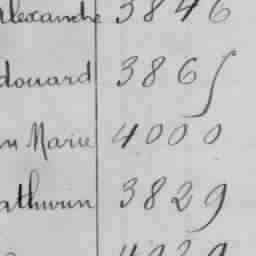 alexandre 3846
douard 3865
n Marie 4000
athurin 3829